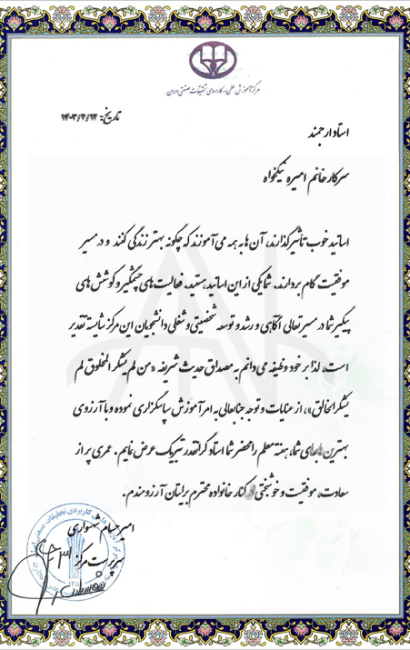 مرکز آموزش علمی-کاربردی تحقیقات صنعتی ایران
تاریخ: ۱۴۰۳/۲/۱۲
استاد ارجمند
سرکار خانم امیره نیکخواه
اساتید خوب تأثیرگذارند، آن ها به همه می آموزند که چگونه بهتر زندگی کنند و در مسیر
موفقیت گام بردارند. شما یکی از این اساتید هستید. فعالیت های چشمگیر و کوشش های
پیگیر شما در مسیر تعالی آگاهی و رشد و توسعه شخصیتی و شغلی دانشجویان این مرکز شایسته تقدیر
است. لذا بر خود وظیفه می دانم به مصداق حدیث شریفه «من لم یشکر المخلوق لم
یشکر الخالق»، از عنایات و توجه جنابعالی به امر آموزش سپاسگزاری نموده و با آرزوی
بهترین ها برای شما، هفته معلم را محضر شما استاد گرانقدر تبریک عرض نمایم. عمری پر از
سعادت، موفقیت و خوشبختی در کنار خانواده محترم برایتان آرزومندم.
امیر حسام شهسواری
سرپرست مرکز